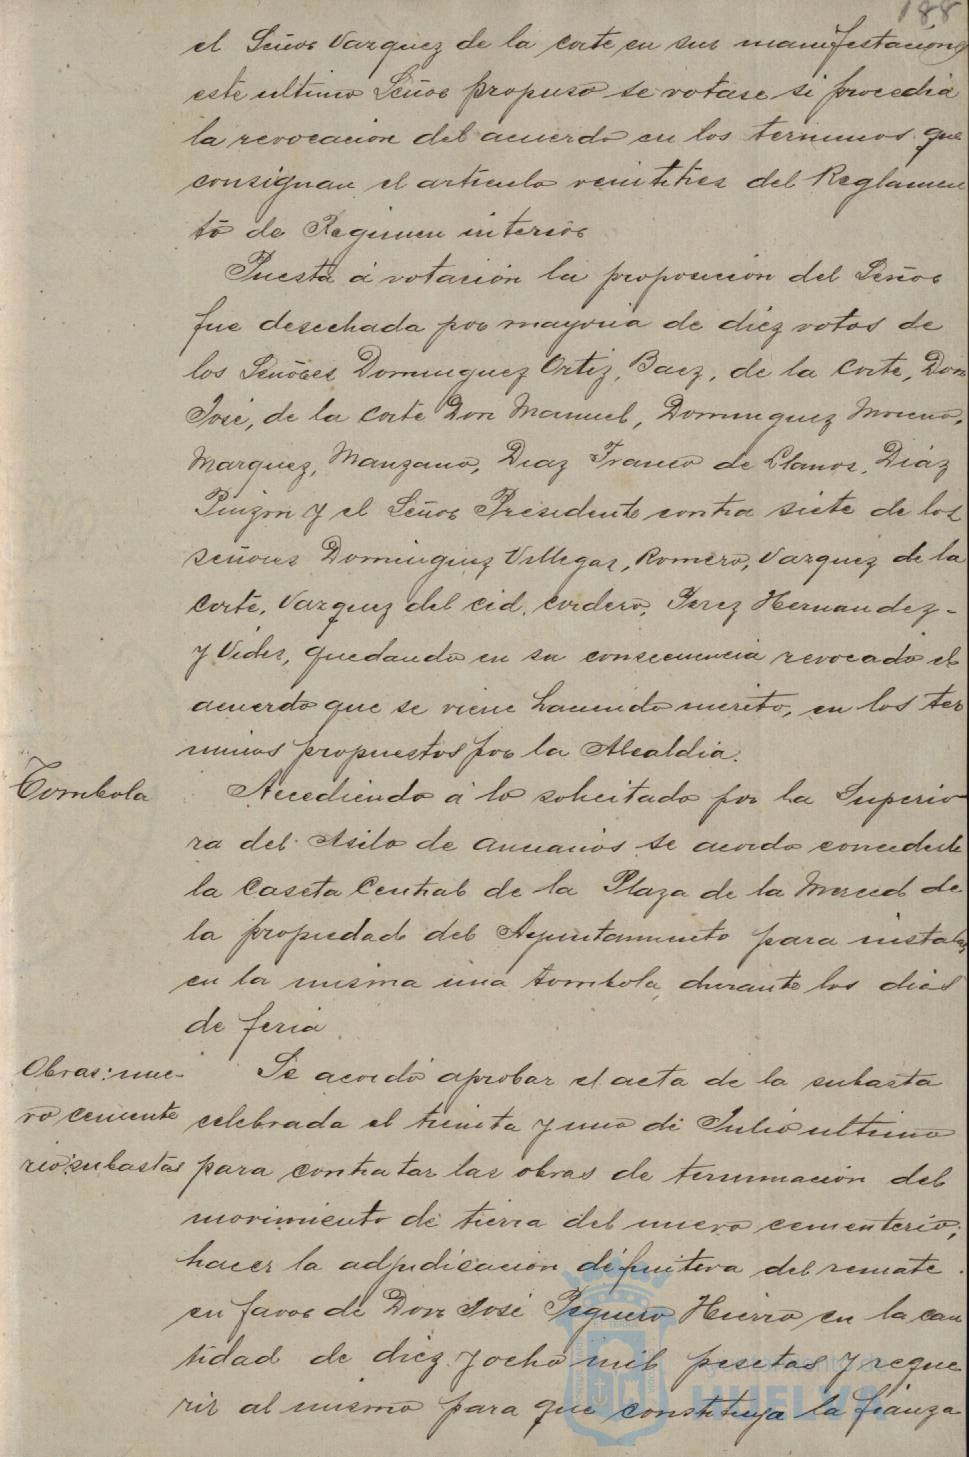 188
el Señor Vazquez de la corte en sus manifestaciones
este ultimo Señor propuso se votase si procedia
la revocacion del acuerdo en los terminos que
consignan el articulo veintitres del Reglamen
to de Regimen interior
Puesta á votación la proposicion del Señor
fue desechada por mayoria de diez votos de
los Señores Dominguez Ortiz, Baez, de la Corte, Don
José, de la Corte Don Manuel, Dominguez Moreno,
Marquez, Manzano, Diaz Franco de Llanos, Diáz
Pinzon y el Señor Presidente contra siete de los
señores Dominguez Villegas, Romero, Vazquez de la
Corte, Vazquez del Cid, Cordero, Perez Hernandez-
y Vides, quedando en su consecuencia revocado el
acuerdo que se viene haciendo merito, en los ter
minos propuestos por la Alcaldia.
Tombola Accediendo á lo solicitado por la Superio
ra del Asilo de ancianos se acordo concederle
la Caseta Central de la Plaza de la Merced de
la propiedad del Ayuntamiento para instalar
en la misma una tombola, durante los dias
de feria
Obras: nue- Se acordó aprobar el acta de la subasta
vo cemente celebrada el treinta y uno de Julio ultimo
rio: subastas para contratar las obras de terminación del
movimiento de tierra del nuevo cementerio;
hacer la adjudicacion definitiva del remate
en favor de Don José Peguero Hierro en la can
tidad de diez y ocho mil pesetas y reque
rir al mismo para que constituya la fianza
Ayuntamiento de
HUELVA